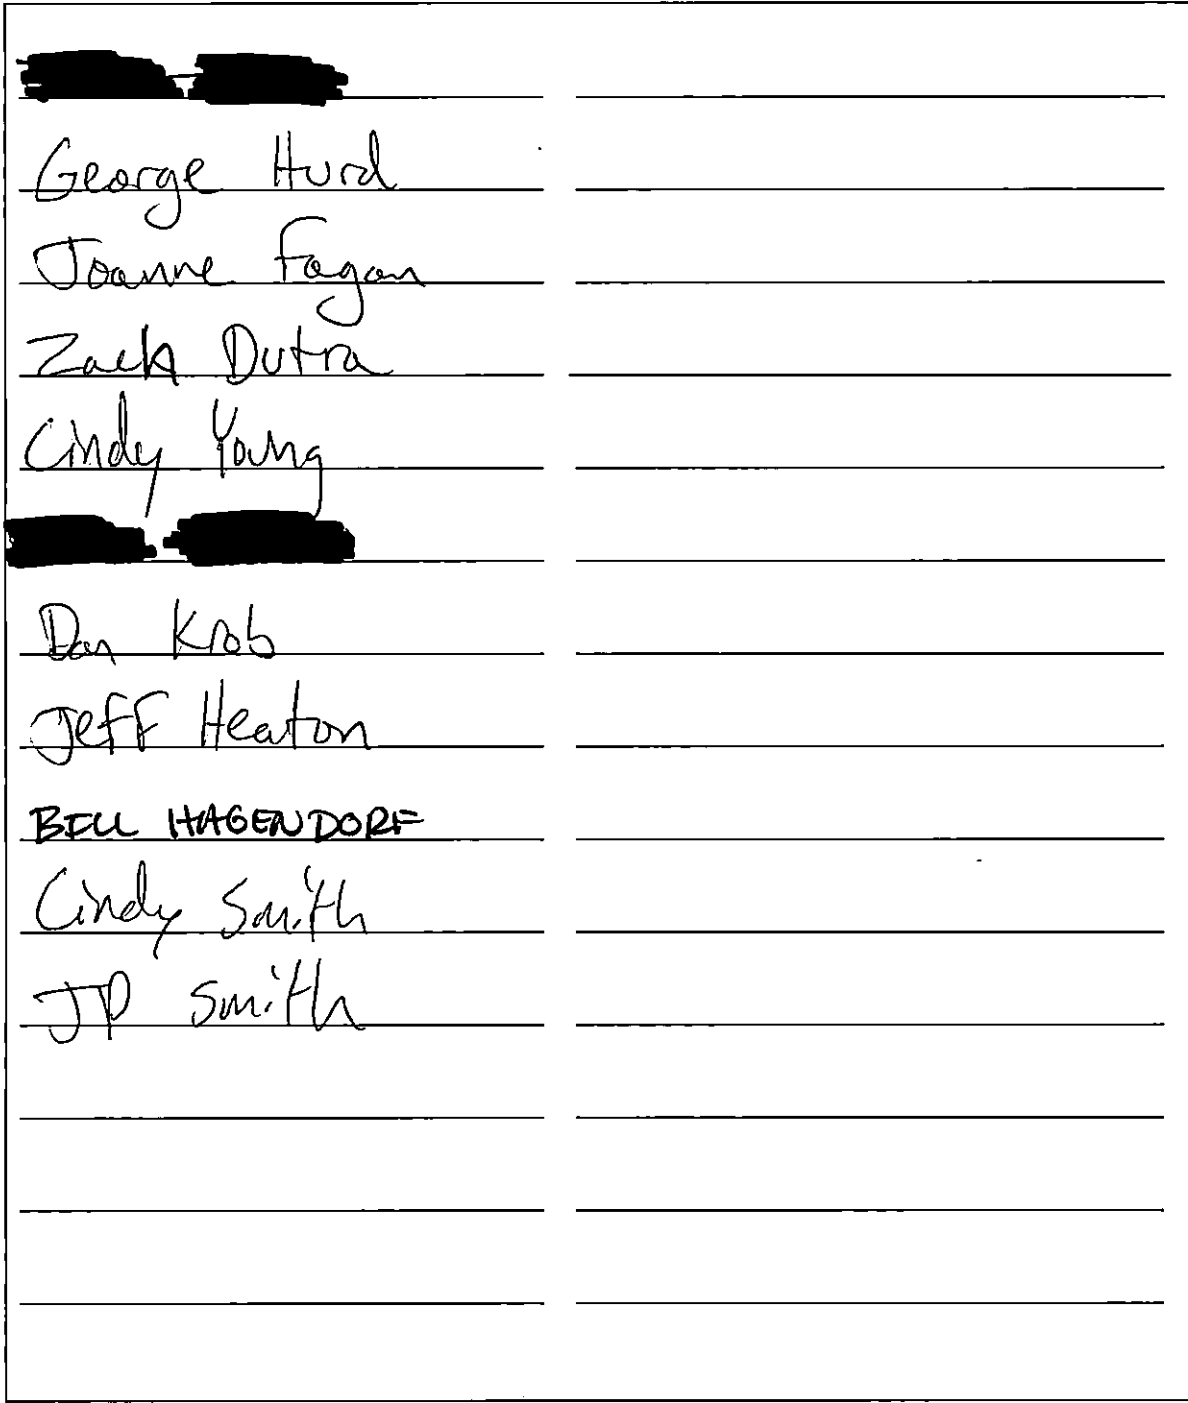 George Hurd
Joanne Fagan
Zach Dutra
Cindy Young
Dan Krob
Jeff Heaton
BILL HAGENDORF
Cindy Smith
JP Smith